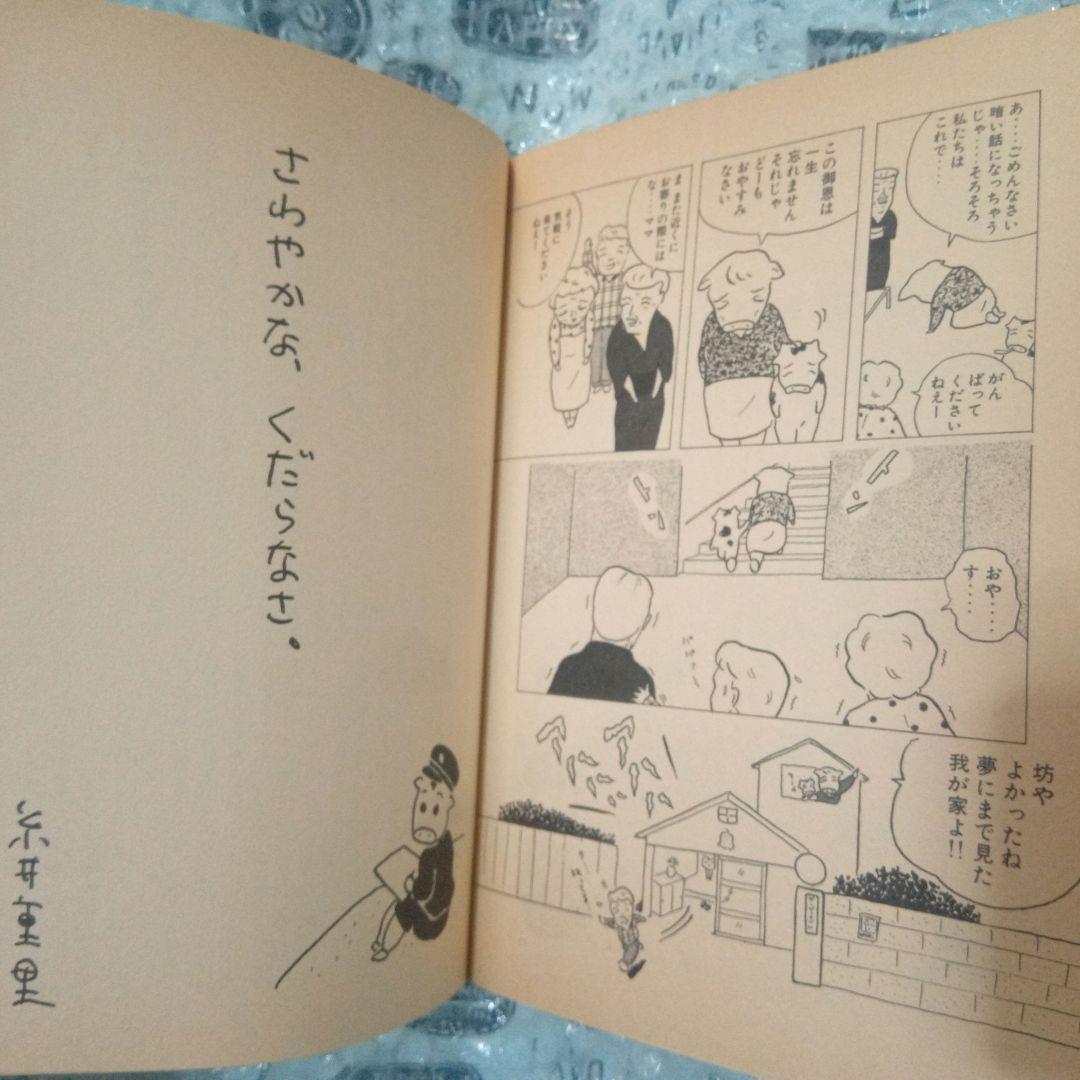 さわやかな、くだらなさ。
糸井重里
あ‥‥ごめんなさい
暗い話になっちゃう
じゃ‥‥そろそろ
私たちは
これで‥‥
がん
ばって
ください
ねえー
この御恩は
一生
忘れません
それじゃ
どーも
おやすみ
なさい
ま まだ近くに
お寄りの際には
な‥‥ママ
そう
気軽に
来てください
ねえー
おや‥‥‥
す‥‥‥
坊や
よかったね
夢にまで見た
我が家よ!!